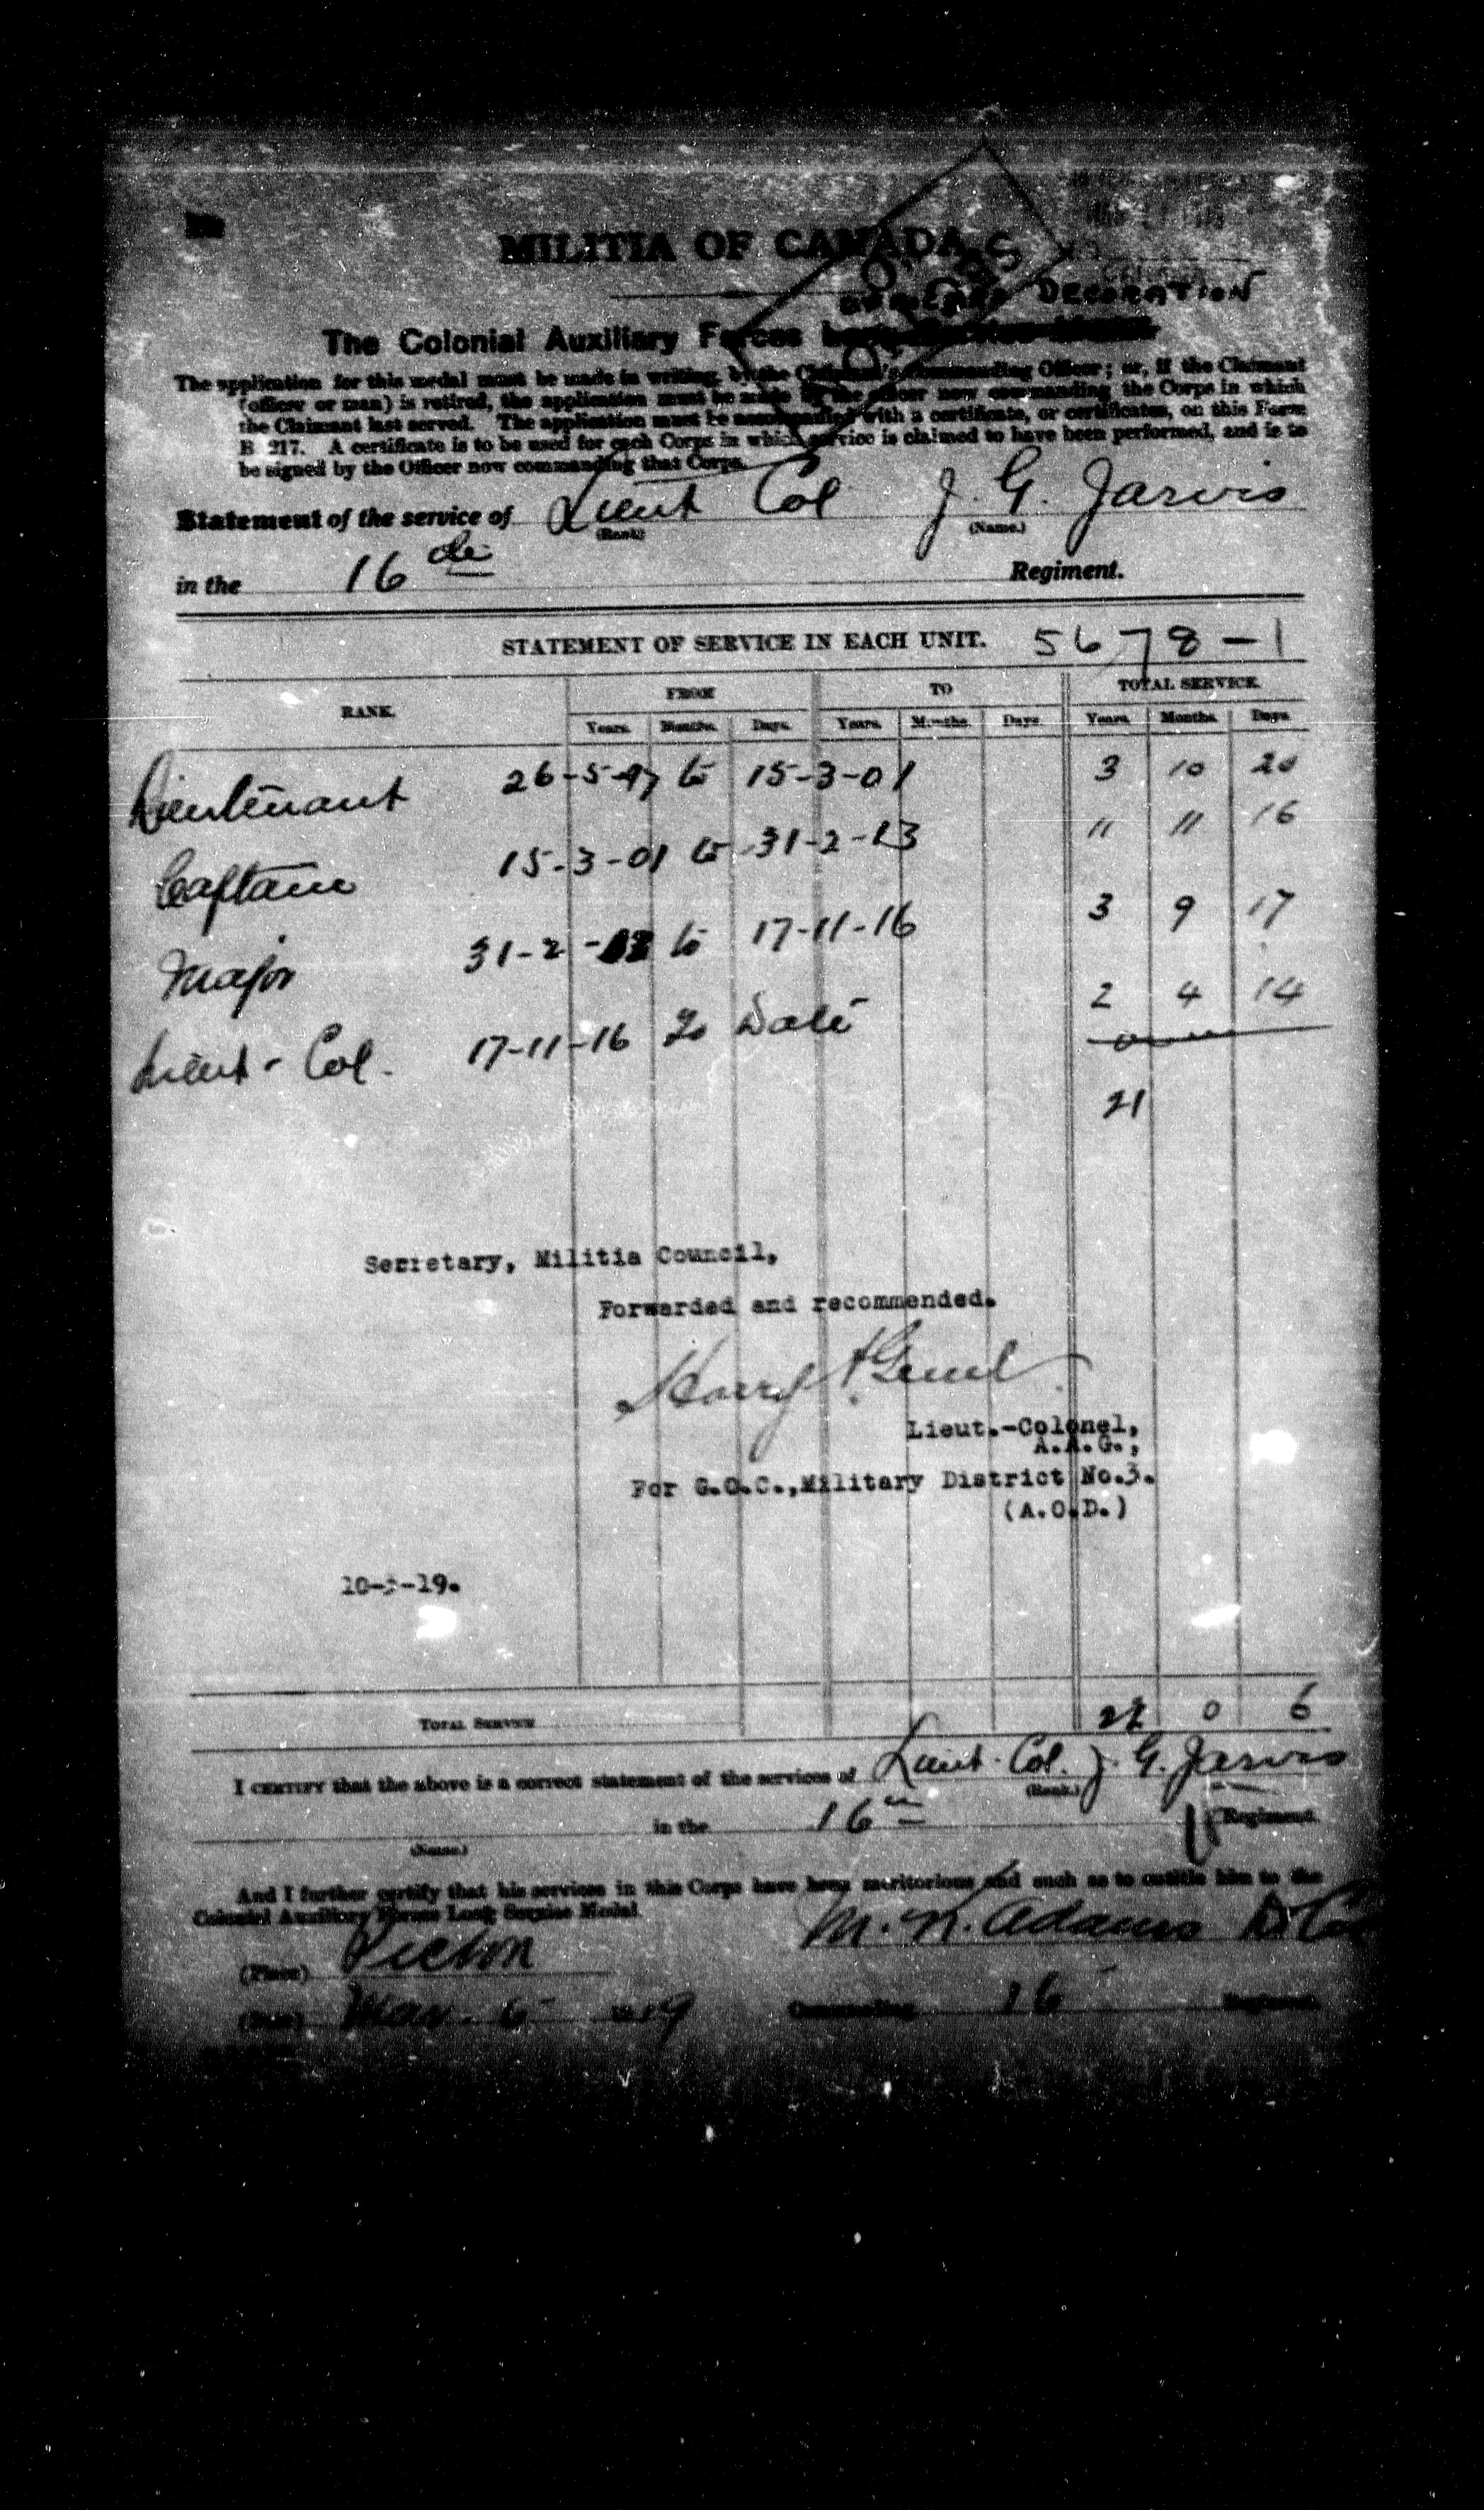 MILITIA OF CANADA
OFFICERS DECORATION
The Colonial Auxiliary Forces
The application for this medal must be made in writing, by the Claimant's Commanding Officer; or, if the Claimant
(officer or man) is retired, the application must be made by the officer now commanding the Corps in which
the Claimant last served. The application must be accompanied with a certificate, or certificates, on this Form
B 217. A certificate is to be used for each Corps in which service is claimed to have been performed, and is to
be signed by the Officer now commanding that Corps.
Statement of the service of Lieut Col J. G. Jarvis
(Rank) (Name.)
in the 16 Regiment.
STATEMENT OF SERVICE IN EACH UNIT. 5678-1
RANK. FROM TO TOTAL SERVICE.
Years. Months. Days. Years. Months. Days. Years. Months. Days.
Lieutenant 26-5-97 to 15-3-01 3 10 20
Captain 15-3-01 to 31-2-13 11 11 16
Major 31-2-13 to 17-11-16 3 9 17
Lieut-Col. 17-11-16 to Date 2 4 14
21
Secretary, Militia Council,
Forwarded and recommended.
Lieut.-Colonel,
A.A.G.,
For G.O.C.,Military District No.3.
(A.O.D.)
TOTAL SERVICE 0 6
I CERTIFY that the above is a correct statement of the services of Lieut-Col. J. G. Jarvis
(Rank.)
in the 16 Regiment.
(Name.)
And I further certify that his services in this Corps have been meritorious and such as to entitle him to the
Colonial Auxiliary Forces Long Service Medal.
M. N. Adams
(Place) Picton
(Date) Mar. 6 1919 Commanding 16 Regiment.